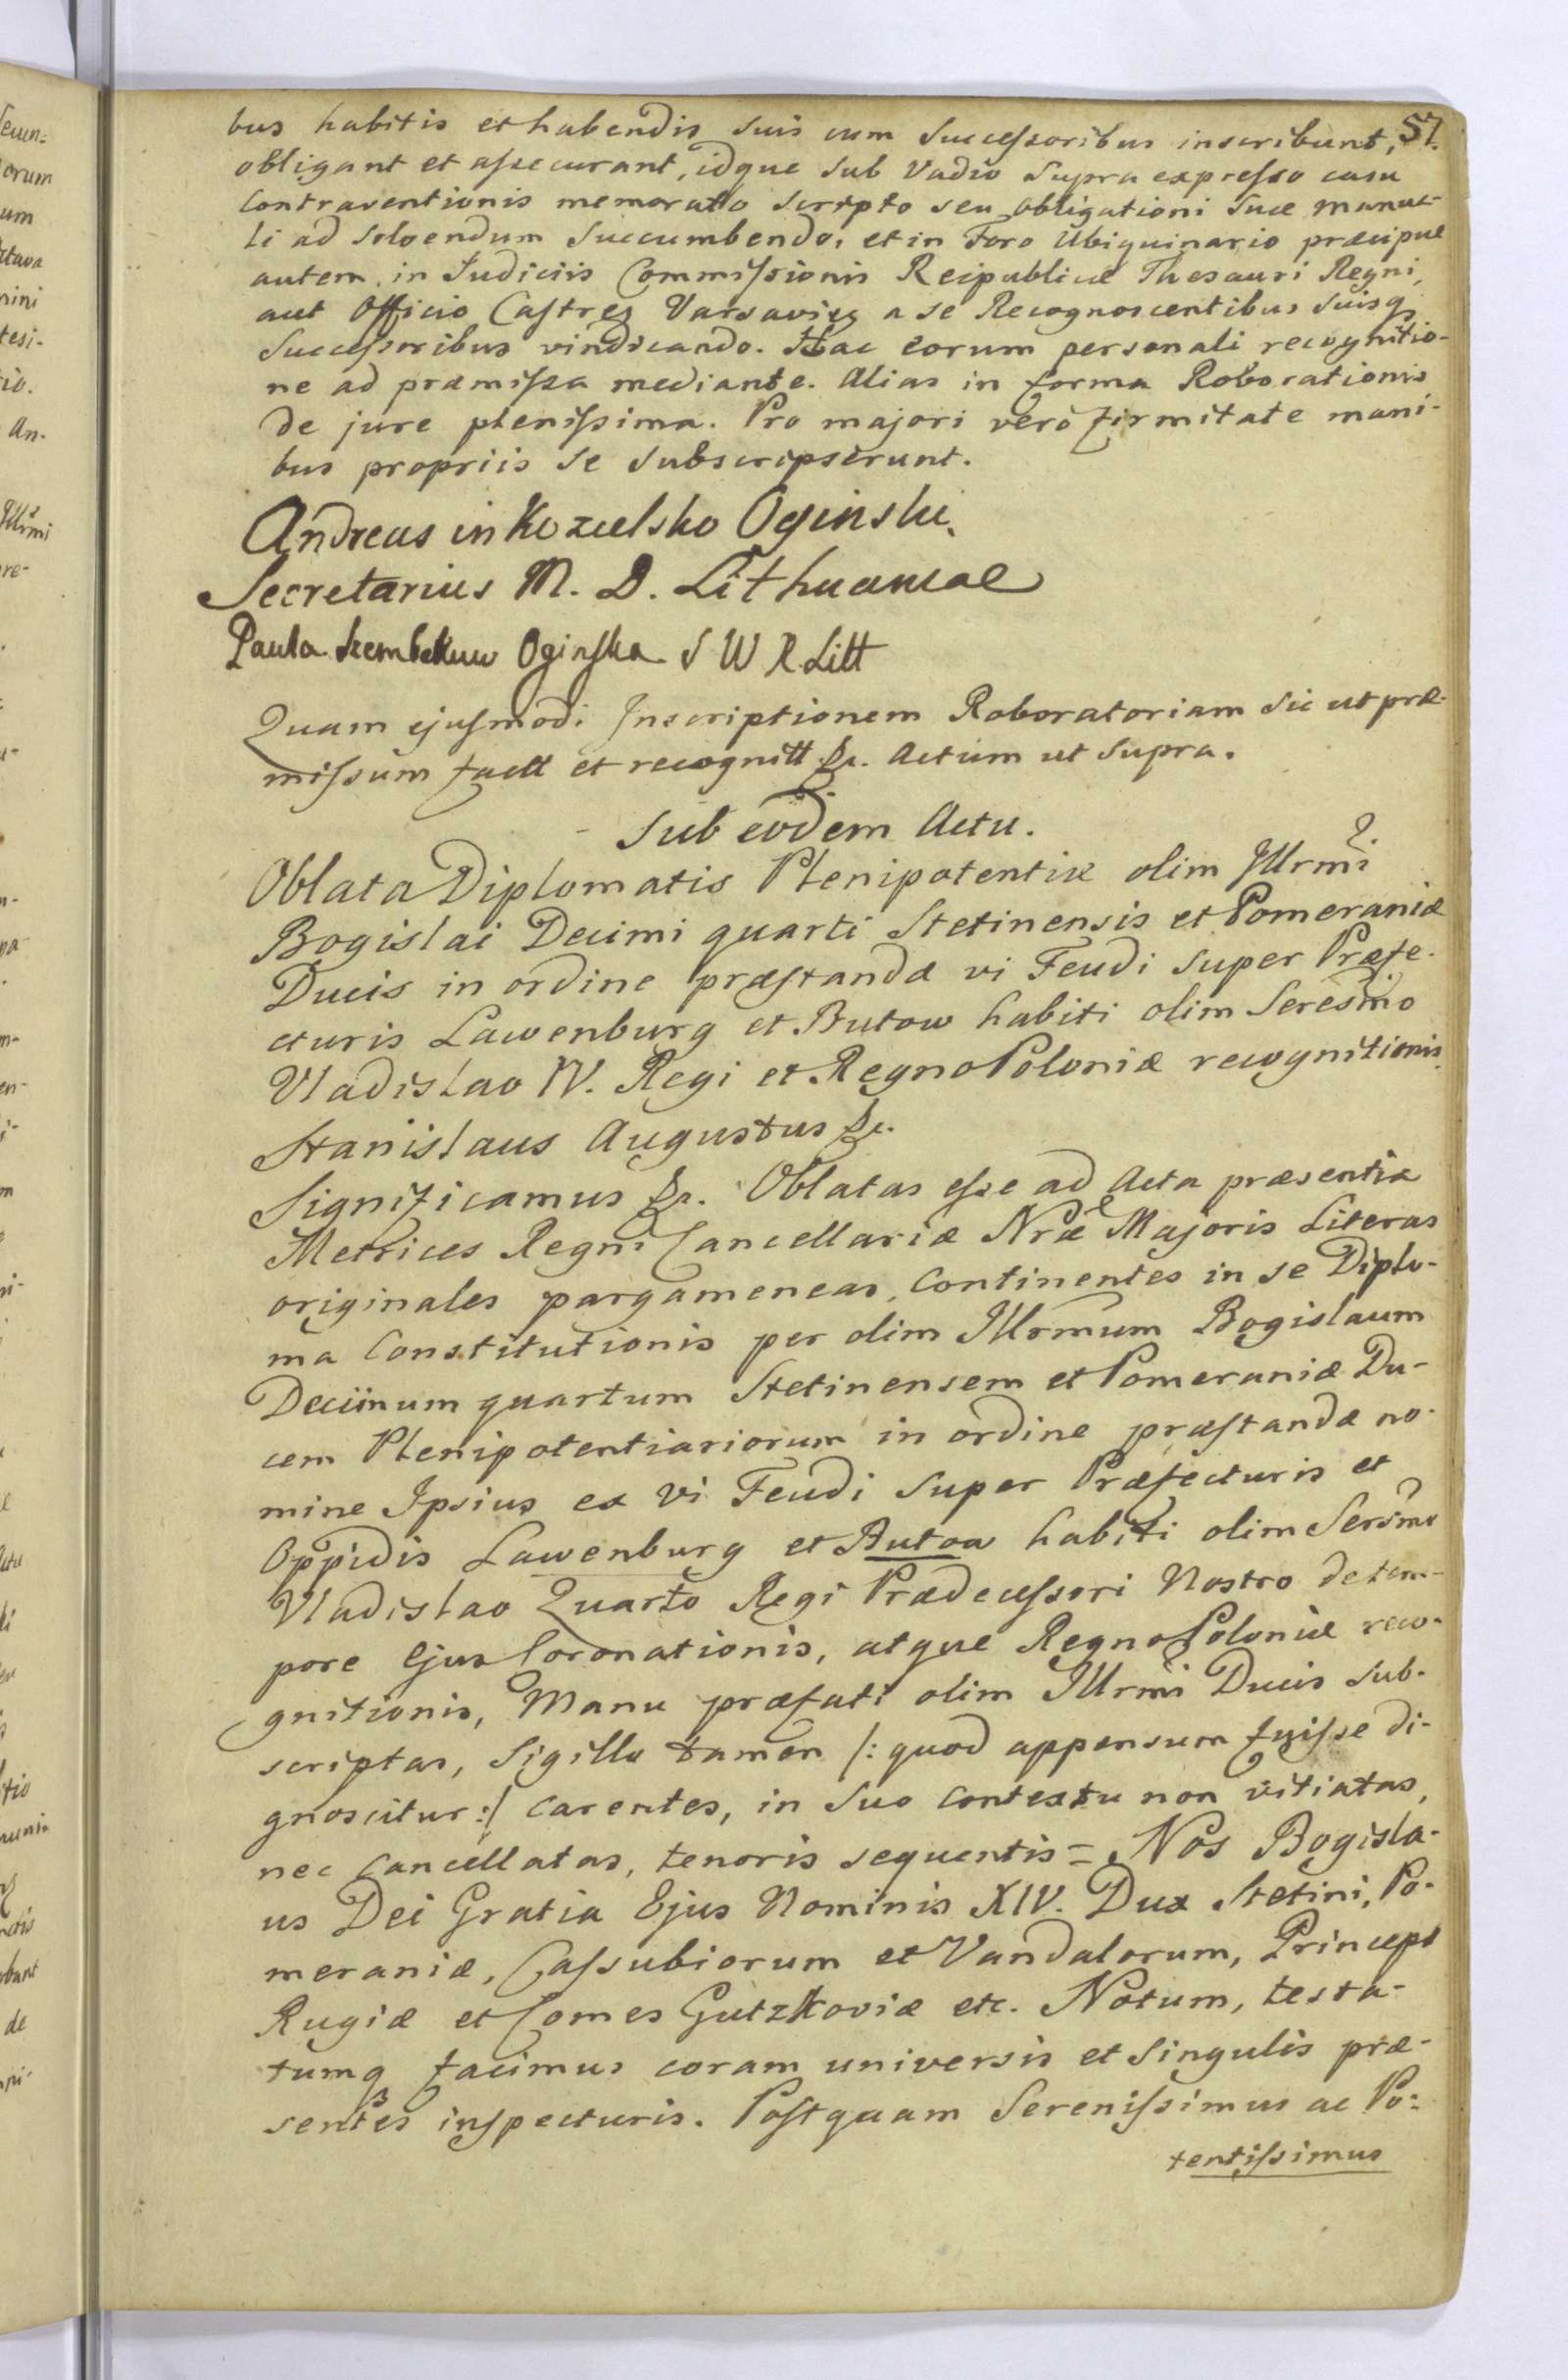 57.
bus habitis et habendis suis cum Successoribus inscribunt,
obligant et assecurant, idque sub Vadio Supra expresso casu
Contraventionis memorato scripto seu obligationi suæ manua-
li ad solvendum Succumbendo, et in Foro Ubiquinario præcipue
autem in Judiciis Commissionis Reipublicæ Thesauri Regni,
aut Officio Castreg Varsavieg a se Recognoscentibus Suisq
Successoribus vindicando. Hac eorum personali recognitio-
ne ad præmissa mediante. Alias in forma Roborationis
de jure plenissima. Pro majori verò firmitate mani-
bus propriis se Subscripserunt.
Andreas in Kozielsko Oginski.
Secretarius M. D. Lithuaniae
Paula Szembekuw Oginska S W X Litt
Quam ejusmodi Inscriptionem Roboratoriam sic ut præ-
missum factt et recognitt &c. Actum ut Supra.
Sub eodem Actu.
Oblata Diplomatis Plenipotentiæ olim Illrmi
Bogislai Decimi quarti Stetinensis et Pomeraniæ
Ducis in ordine præstandæ vi Feudi super Præfe-
cturis Lawenburg et Butow habiti olim Seresmo
Vladislao IV. Regi et Regno Poloniæ recognitionis.
Stanislaus Augustus &c.
Significamus &c. Oblatas esse ad Acta præsentia
Metrices Regni Cancellariæ Nræ Majoris Literas
originales pargameneas, Continentes in se Diplo-
ma Constitutionis per olim Illrmum Bogislaum
Decimum quartum Stetinensem et Pomeraniæ Du-
cem Plenipotentiariorum in ordine præstandæ no-
mine Ipsius ex vi Feudi super Præfecturis et
Oppidis Lawenburg et Butow habiti olim Sersmo
Vladislao Quarto Regi Prædecessori Nostro de tem-
pore Ejus Coronationis, atque Regno Poloniæ reco-
gnitionis, Manu præfati olim Illrmi Ducis sub-
scriptas, Sigillo tamen /: quod appensum fuisse di-
gnoscitur :/ carentes, in suo contextu non vitiatas,
nec cancellatas, tenoris sequentis = Nos Bogisla-
us Dei Gratia Ejus Nominis XIV. Dux Stetini, Po-
meraniæ, Cassubiorum et Vandalorum, Princeps
Rugiæ et Comes Gutzkoviæ etc. Notum, testa-
tumq facimus coram universis et singulis præ-
sentes inspecturis. Postquam Serenissimus ac Po-
tentissimus